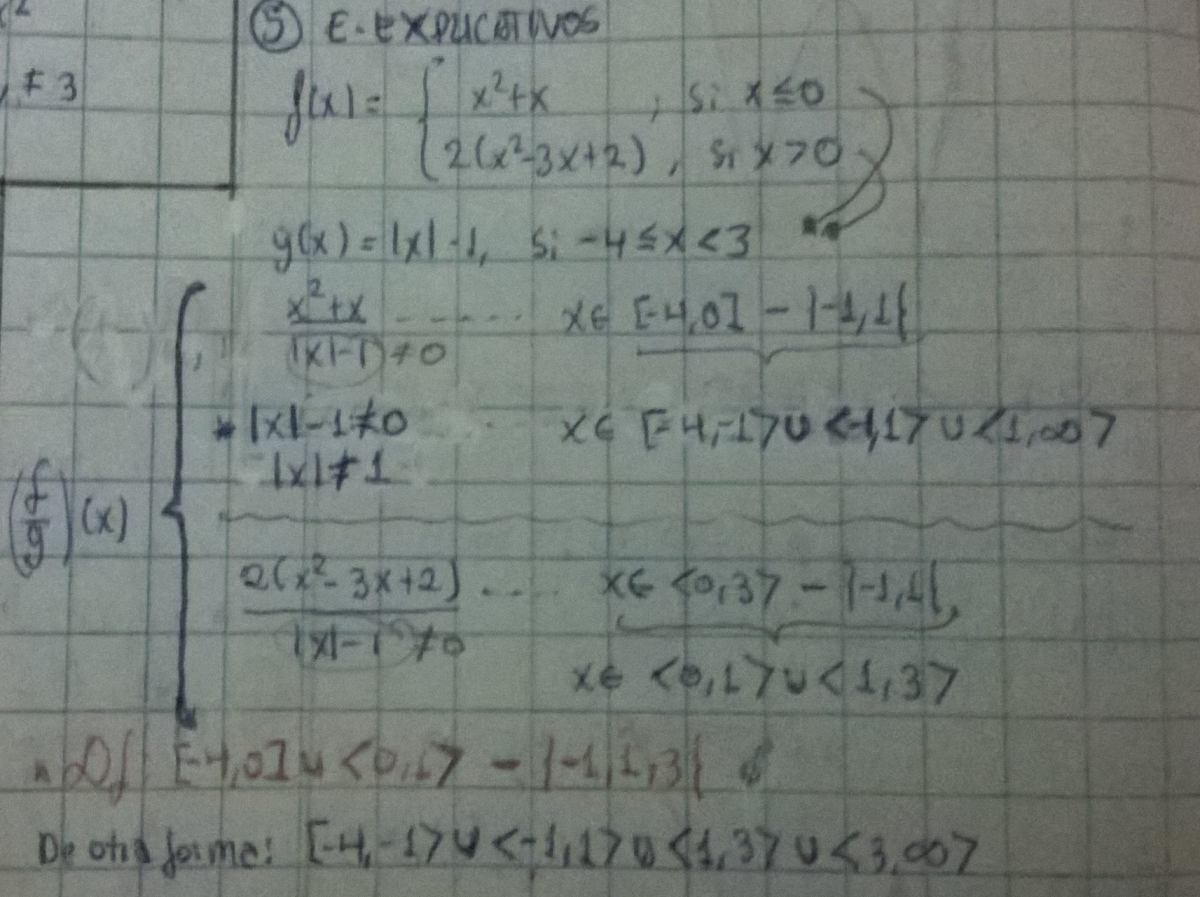 ≠ 3
⑤ E. EXPLICATIVOS
f(x) = { x²+x , si x≤0
2(x²-3x+2), si x>0
g(x) = |x|-1, si -4≤x<3
x²+x / |x|-1 ≠0 ...... x∈ [-4,0] - {-1,1}
* |x|-1≠0 x∈ [-4,-1>∪<-1,1>∪<1,∞>
|x|≠1
(f/g)(x)
2(x²-3x+2) / |x|-1 ≠0 .... x∈ <0,3> - {-1,1},
x∈ <0,1>∪<1,3>
Df [-4,0]∪<0,1> - {-1,1,3}
De otra forma: [-4,-1>∪<-1,1>∪<1,3>∪<3,∞>